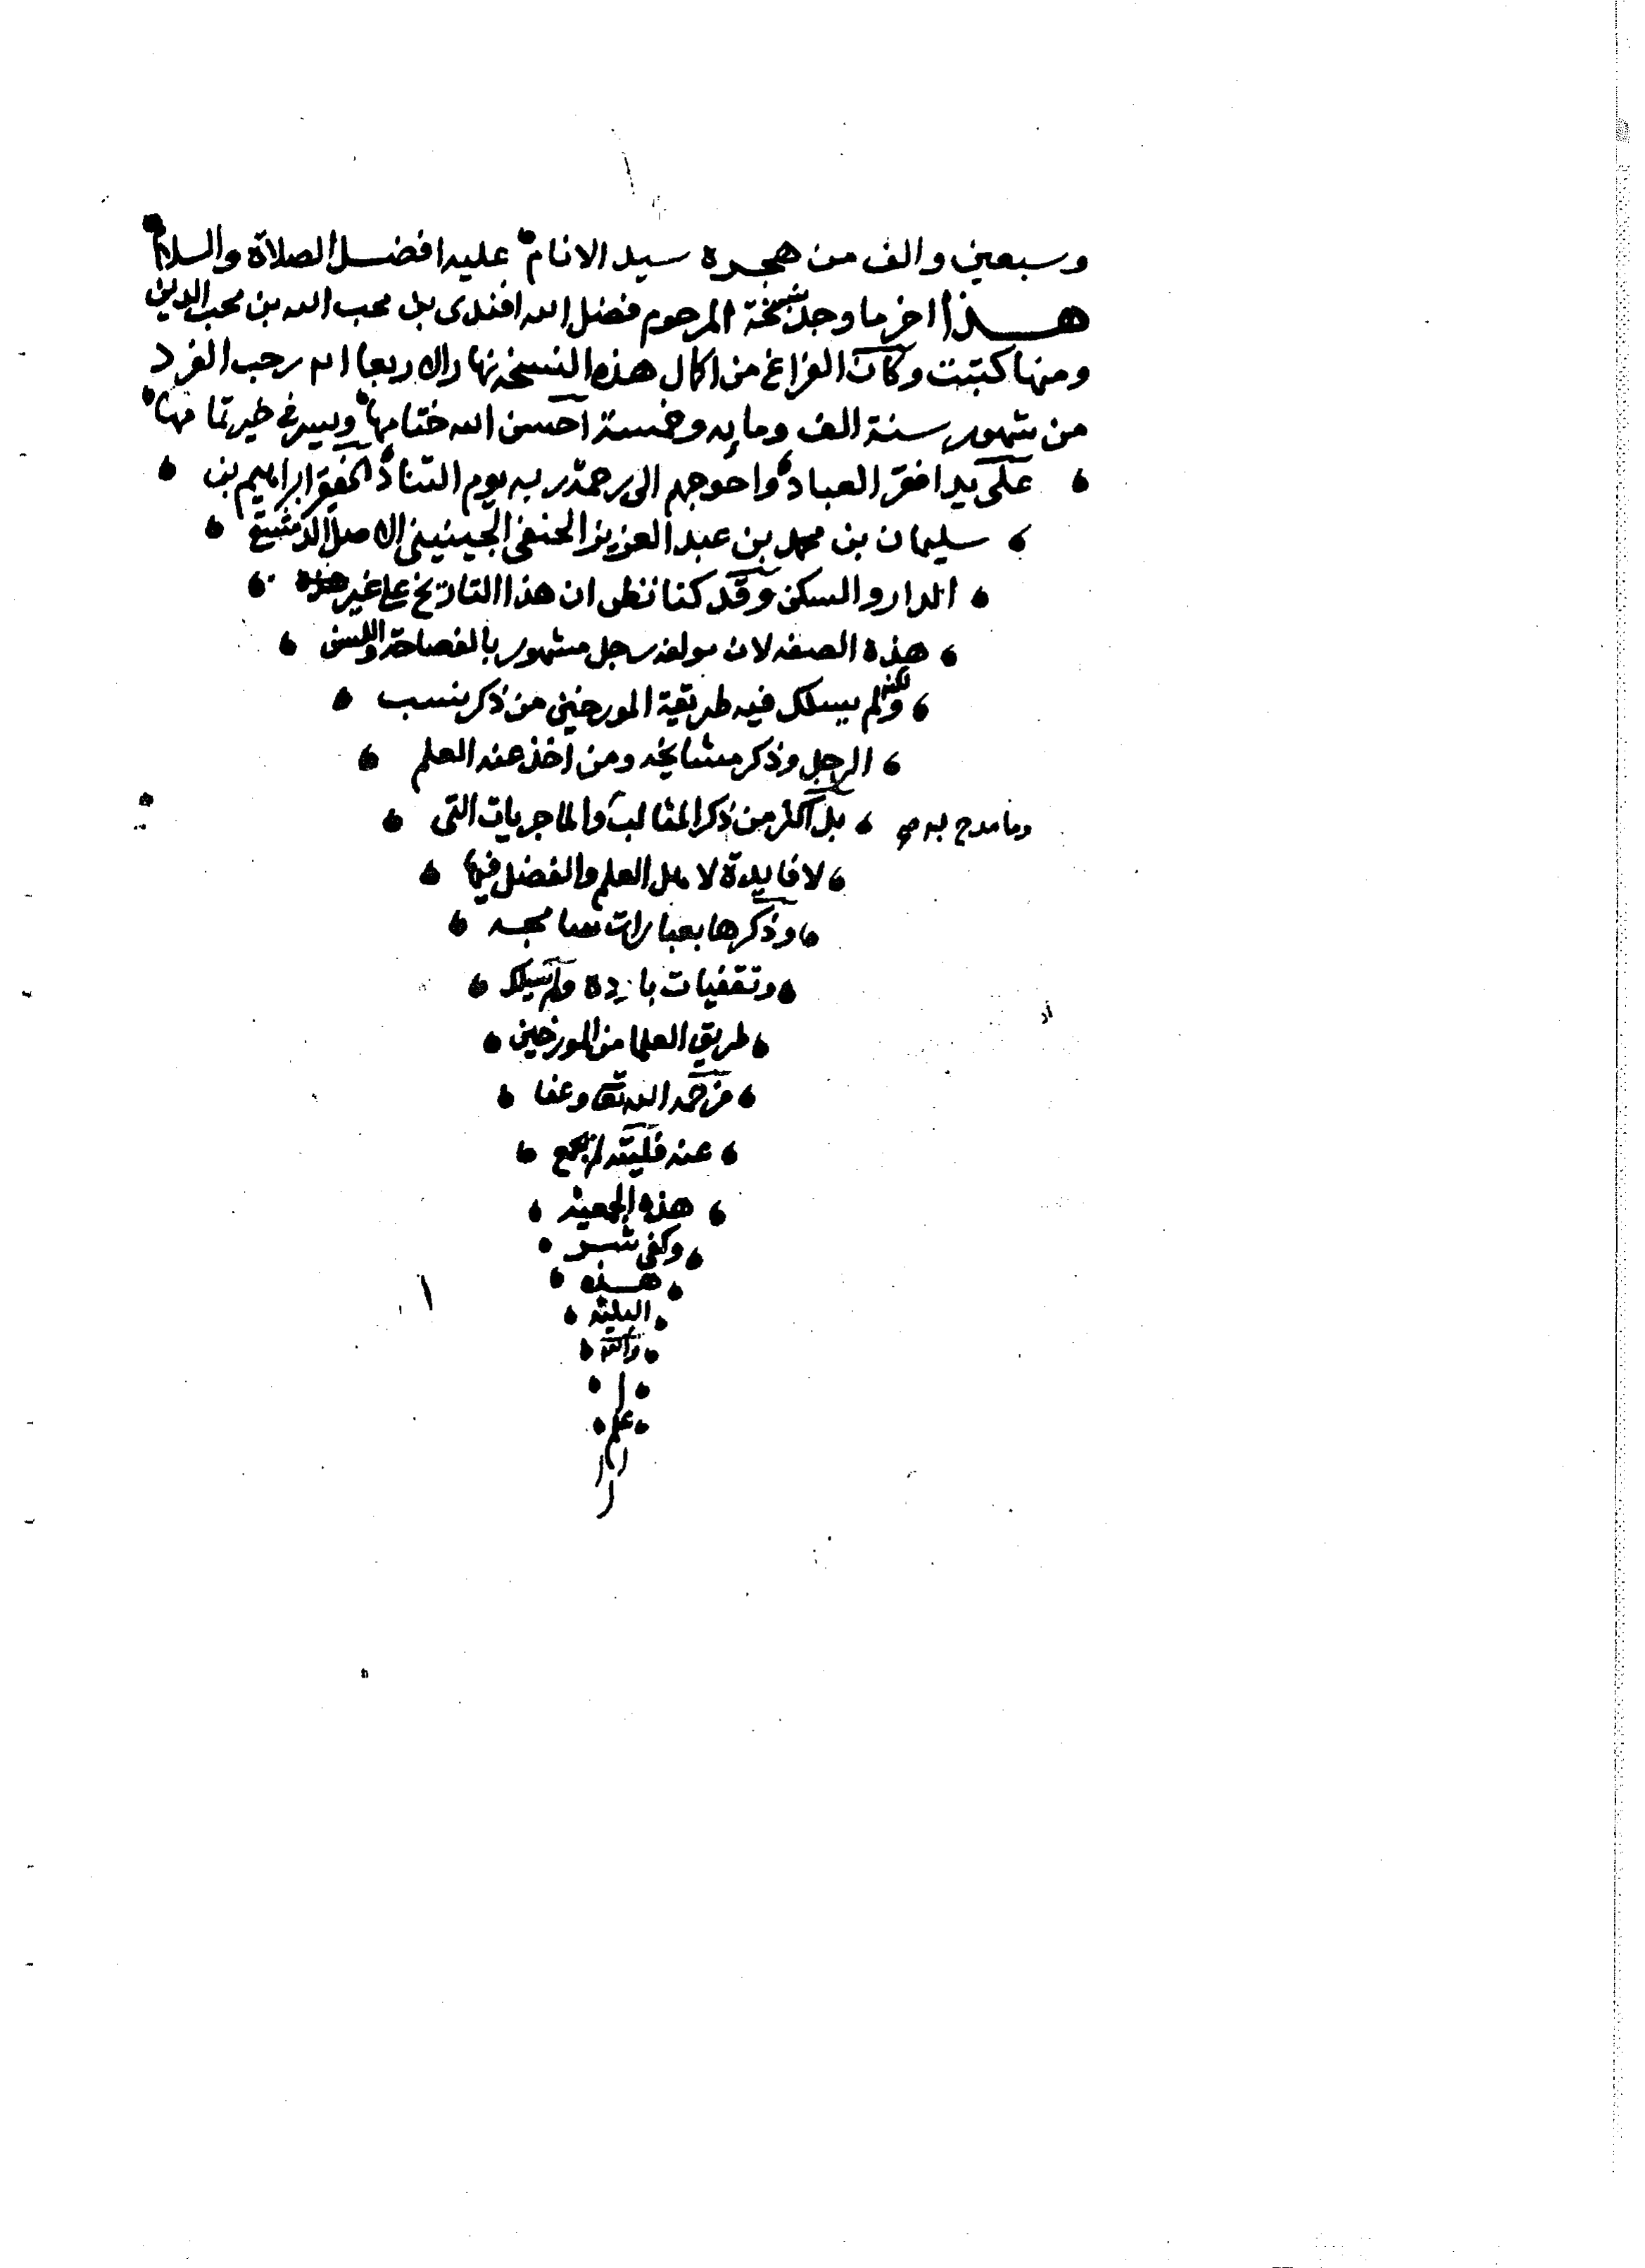 وسبعين والف من هجرة سيد الانام عليه افضل الصلاة والسلام
هذا اخر ما وجد بنسخة المرحوم فضل الله افندى بن محب الله بن محب الدين
ومنها كتبت وكان الفراغ من اكمال هذه النسخة نهار الاربعا رجب الفرد
من شهور سنة الف ومايه وخمسة احسن الله ختامها ويسر فى خير تمامها
على يد افقر العباد واحوجهم الى رحمة ربه يوم التناد الحقير ابراهيم بن
سليمان بن محمد بن عبد العزيز الحنفى الجينينى الاصل الدمشقى
الدار والسكن وقد كنا نظن ان هذا التاريخ على غير هذه
هذه الصفه لان مولفه رجل مشهور بالفصاحة واللسن
ولكنه لم يسلك فيه طريقة المورخين من ذكر نسب
الرجل وذكر مشايخه ومن اخذ عنه العلم
وما مدح به
بل اكثر من ذكر المثالب والماجريات التى
لا فايدة لاهل العلم والفضل فيها
وذكرها بعبارات
وتقفيات باردة ولم يسلك
طريق العلما من المورخين
فرحمه الله تعا وعفا
عنه فليته لم يجمع
هذه الجمعيه
وكفى شر
هذه
البليه
والله
اعلم